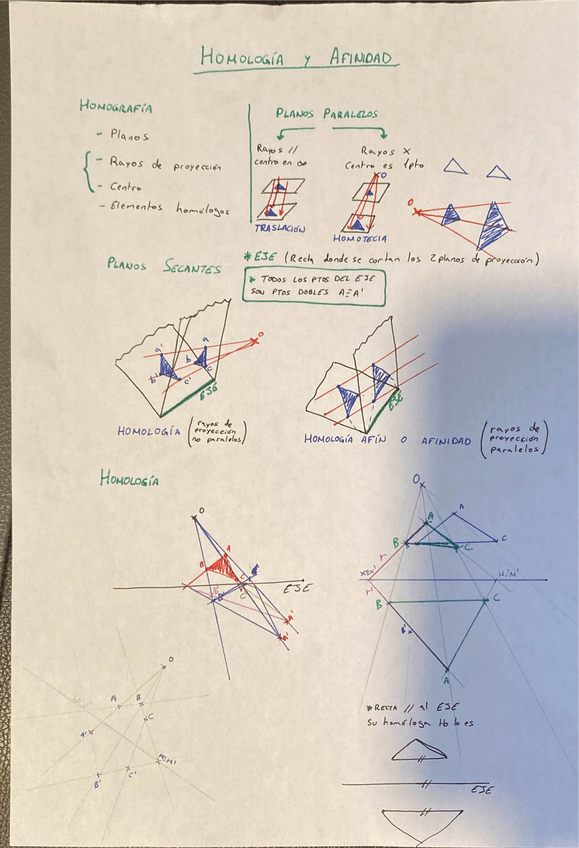 HOMOLOGÍA y AFINIDAD
HOMOGRAFÍA
- Planos
- Rayos de proyección
- Centro
- Elementos homólogos
PLANOS PARALELOS
Rayos //
centro en ∞
TRASLACIÓN
Rayos X
Centro es 1pto
O
HOMOTECIA
O
PLANOS SECANTES
* EJE (Recta donde se cortan los 2 planos de proyección)
* TODOS LOS PTOS DEL EJE
SON PTOS DOBLES A≡A'
a'
b'
c'
a
b
O
EJE
HOMOLOGÍA (rayos de proyección no paralelos)
EJE
HOMOLOGÍA AFÍN O AFINIDAD (rayos de proyección paralelos)
HOMOLOGÍA
O
A
B
C
EJE
B'
C'
A'
A'
O
A
A
B
C
C
r
X≡X'
M≡M'
r'
B
C
B'
A
O
A
B
C
A'
M≡M'
B'
C'
* RECTA // al EJE
Su homóloga tb lo es
EJE